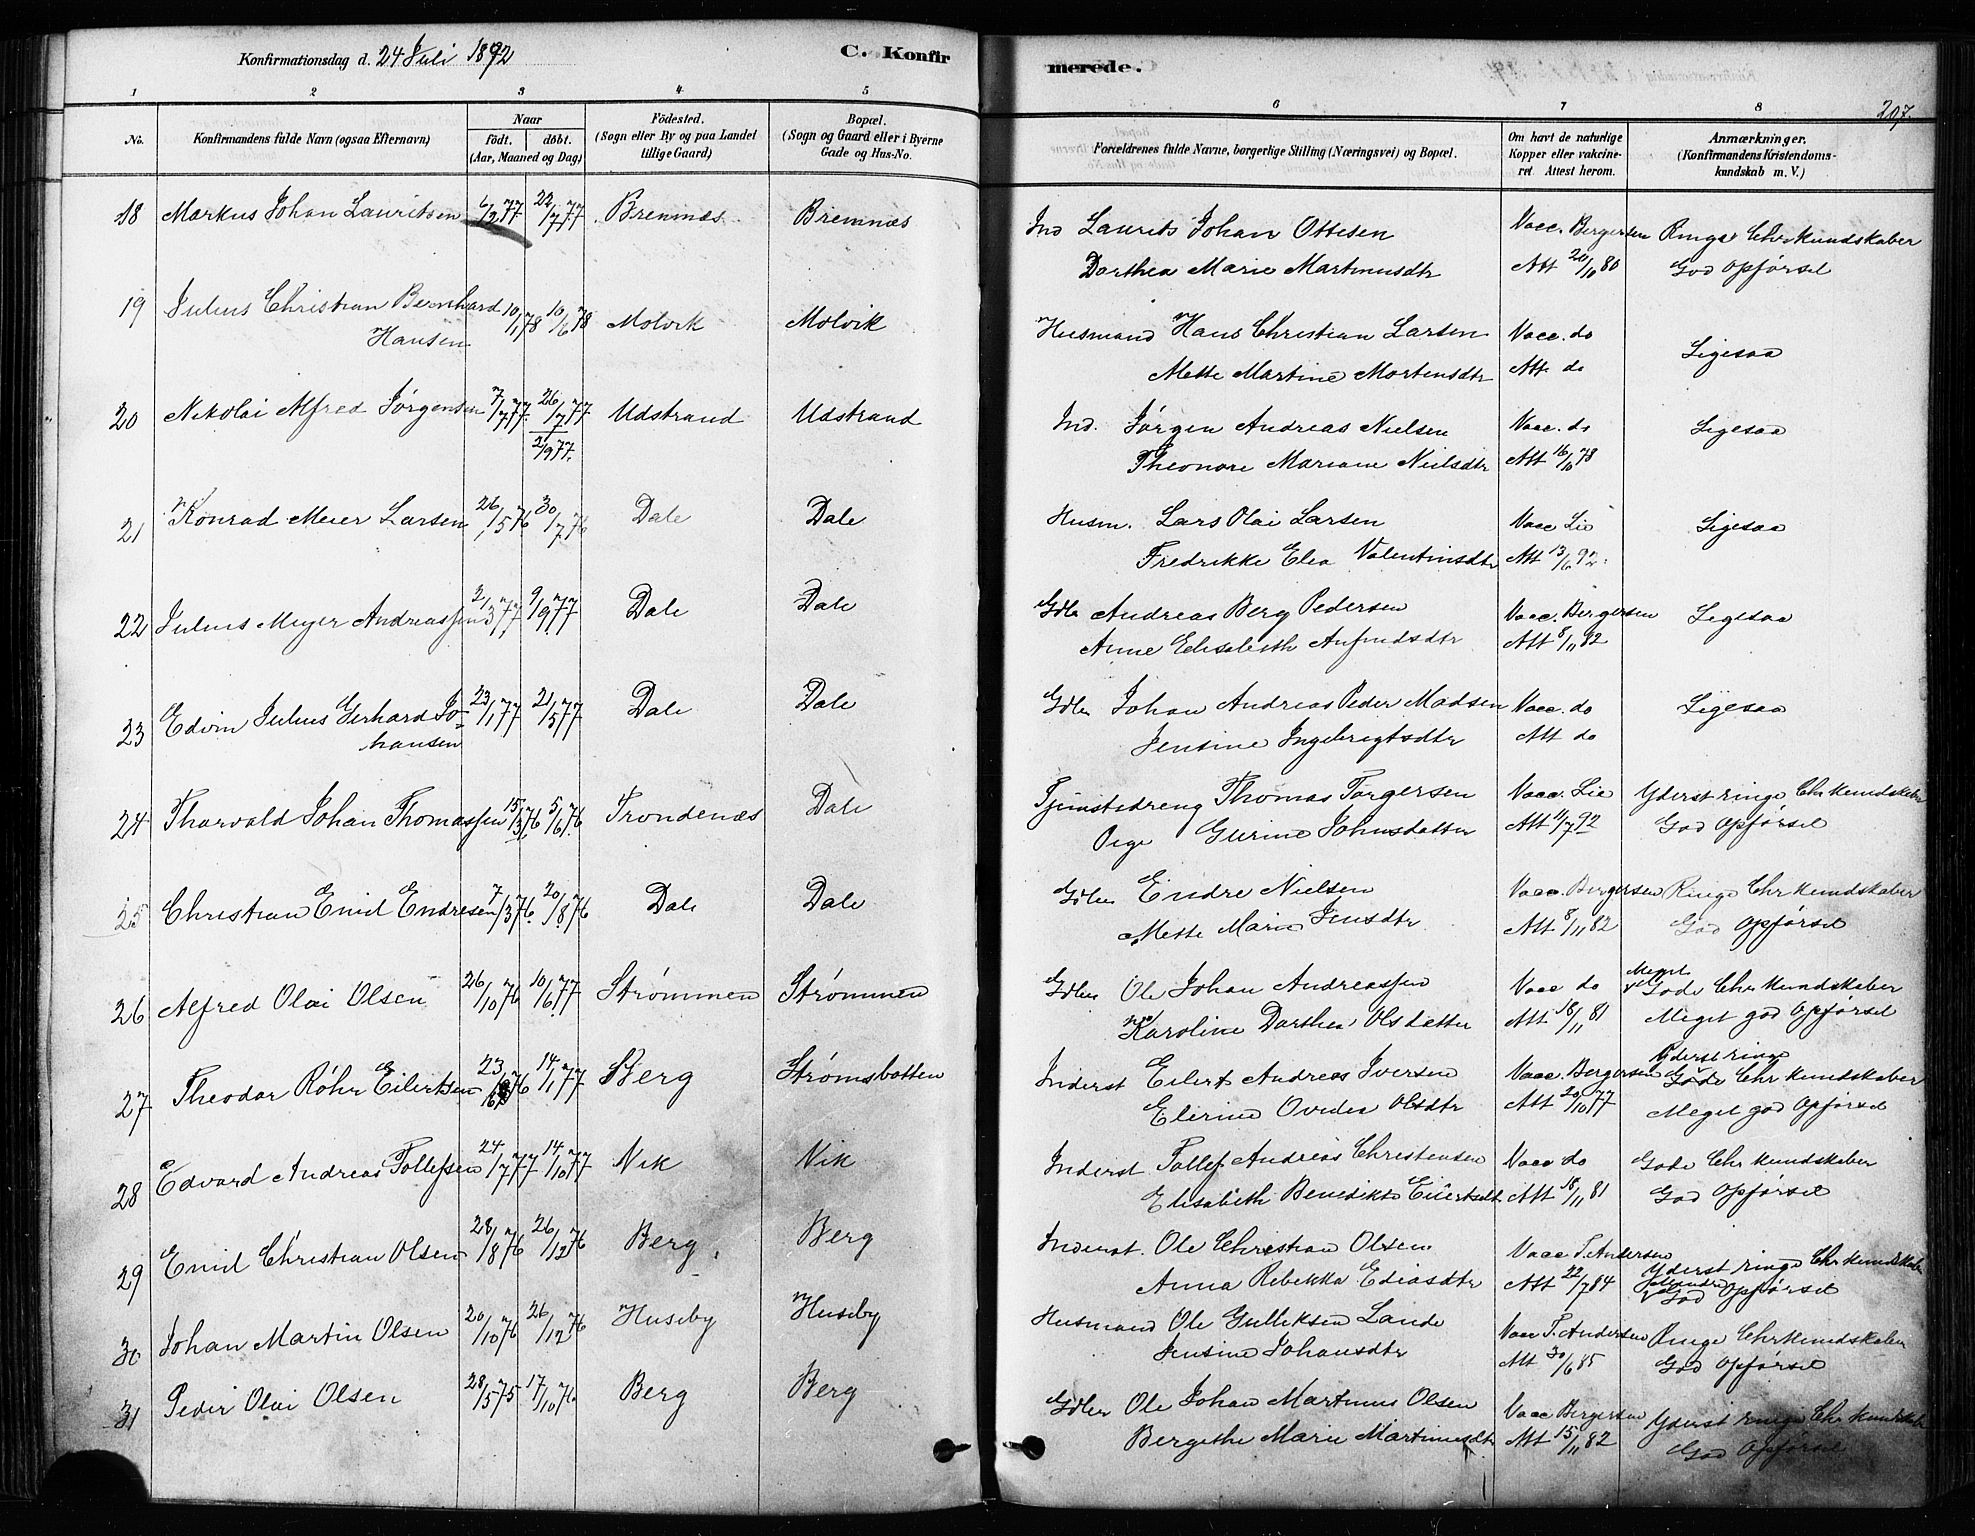 Konfirmationsdag d. 24 Juli 1892
C. Konfir
merede.
207.
1 2 3 4 5 6 7 8
No.
Konfirmandens fulde Navn (ogsaa Efternavn)
Naar
födt. döbt.
(Aar, Maaned og Dag)
Födested.
(Sogn eller By og paa Landet
tillige Gaard)
Bopæl.
(Sogn og Gaard eller i Byerne
Gade og Hus-No.
Forældrenes fulde Navne, borgerlige Stilling (Næringsvei) og Bopæl.
Om havt de naturlige
Kopper eller vakcine-
ret. Attest herom.
Anmærkninger.
(Konfirmandens Kristendoms-
kundskab m. V.)
18 Markus Johan Lauritsen 6/2 77 22/7 77 Bremnæs Bremnæs Ind Laurits Johan Ottesen Vacc. Bergersen Ringe Chr kundskaber
Dorthea Marie Martinusdtr Att 20/10 80 God Opførsel
19 Julius Christian Bernhard 10/1 78 10/6 78 Molvik Molvik Husmand Hans Christian Larsen Vacc. do Ligesaa
Hansen Mette Martine Mortensdtr Att do
20 Nikolai Alfred Jørgensen 7/7 77. 26/7 77 Udstrand Udstrand Ind. Jørgen Andreas Nielsen Vacc. do Ligesaa
2/9 77. Theonore Mariane Nielsdtr Att 16/10 78
21 Konrad Meier Larsen 26/5 76 30/7 76 Dale Dale Husm. Lars Olai Larsen Vacc Lie Ligesaa
Fredrikke Elea Valentinsdtr Att 13/6 92.
22 Julius Meyer Andreassen 2/3 77 9/9 77 Dale Dale Gdbr Andreas Berg Pedersen Vacc. Bergersen Ligesaa
Anne Elisabeth Anfindsdtr Att 8/11 82
23 Edvin Julius Gerhard Jo- 23/1 77 21/5 77 Dale Dale Gdbr Johan Andreas Peder Madsen Vacc. do Ligesaa
hansen Jensine Ingebrigtsdtr Att do
24 Tharvald Johan Thomassen 15/3 76 5/6 76 Trondenæs Dale Tjenstedreng Thomas Torgersen Vacc. Lie Yderst ringe Chr kundskaber
Pige Gurine Johnsdatter Att 11/7 92 God Opførsel
25 Christian Emil Endresen 7/3 76. 20/8 76 Dale Dale Gdbr Endre Nielsen Vacc. Bergersen Ringe Chr kundskaber
Mette Marie Jensdtr Att 8/11 82 God Opførsel
26 Alfred Olai Olsen 26/10 76 10/6 77 Strømmen Strømmen Gdbr Ole Johan Andreassen Vacc do Meget
Gode Chr kundskaber
Karoline Dorthea Olsdatter Att 18/11 81 Meget god Opførsel
27 Theodor Röhr Eilertsen 23/ 76 14/1 77 Berg Strømsbotten Inderst Eilert Andreas Iversen Vacc. Bergersen Yderst ringe
Gode Chr kundskaber
Elerine Ovedia Olsdtr Att 20/10 77 Meget god Opførsel
28 Edvard Andreas Tollefsen 24/7 77 14/10 77 Vik Vik Inderst Tollef Andreas Christensen Vacc do Gode Chr kundskaber
Elisabeth Benedikte Eilertsdtr Att 18/11 81 God Opførsel
29 Emil Christian Olsen 28/8 76 26/12 76 Berg. Berg Inderst. Ole Christian Olsen Vacc T. Andersen Yderst ringe Chr kundskaber
Anna Rebekka Eliasdtr Att 22/7 84 God Opførsel
30 Johan Martin Olsen 20/10 76 26/12 76 Huseby Huseby Husmand Ole Gulliksen Lande Vacc T. Andersen Ringe Chr Kundskaber
Jensine Johansdtr Att 30/6 85 God Opførsel
31 Peder Olai Olsen 28/5 75 17/10 76 Berg Berg Gdbr Ole Johan Martinus Olsen Vacc Bergersen Yderst ringe Chr kundskab
Bergithe Marie Martinusdtr Att 15/11 82 God Opførsel